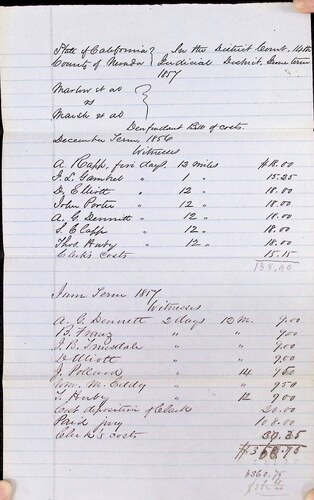 State of California } In the District Court, 14th
County of Nevada } Judicial District, June term
1857
Marlow et al }
vs
Marsh et al }
Denfendant Bill of costs.
December Term, 1856
Witnesses
A. Rapp, five days, 12 miles $18.00
J. L. Gamkel " 1 " 15.25
D. Elliott " 12 " 18.00
John Porter " 12 " 18.00
A. G. Dennett " 12 " 18.00
S. C Capp " 12 " 18.00
Thos. Huby " 12 " 18.00
Clerk's costs 15.15
138.40
June Term 1857
Witnesses
A. G. Dennett 2 days 12 M. 9.00
B. Franz " " 9.00
J. B. Truesdale " " 9.00
D Elliott " " 9.00
J. Pollard " 14 9.50
Wm. M. Eddy " " 9.50
T. Huby " 12 9.00
Cost deposition of Clark 20.00
Paid jury 108.00
Clerk's costs 37.35
$360.75